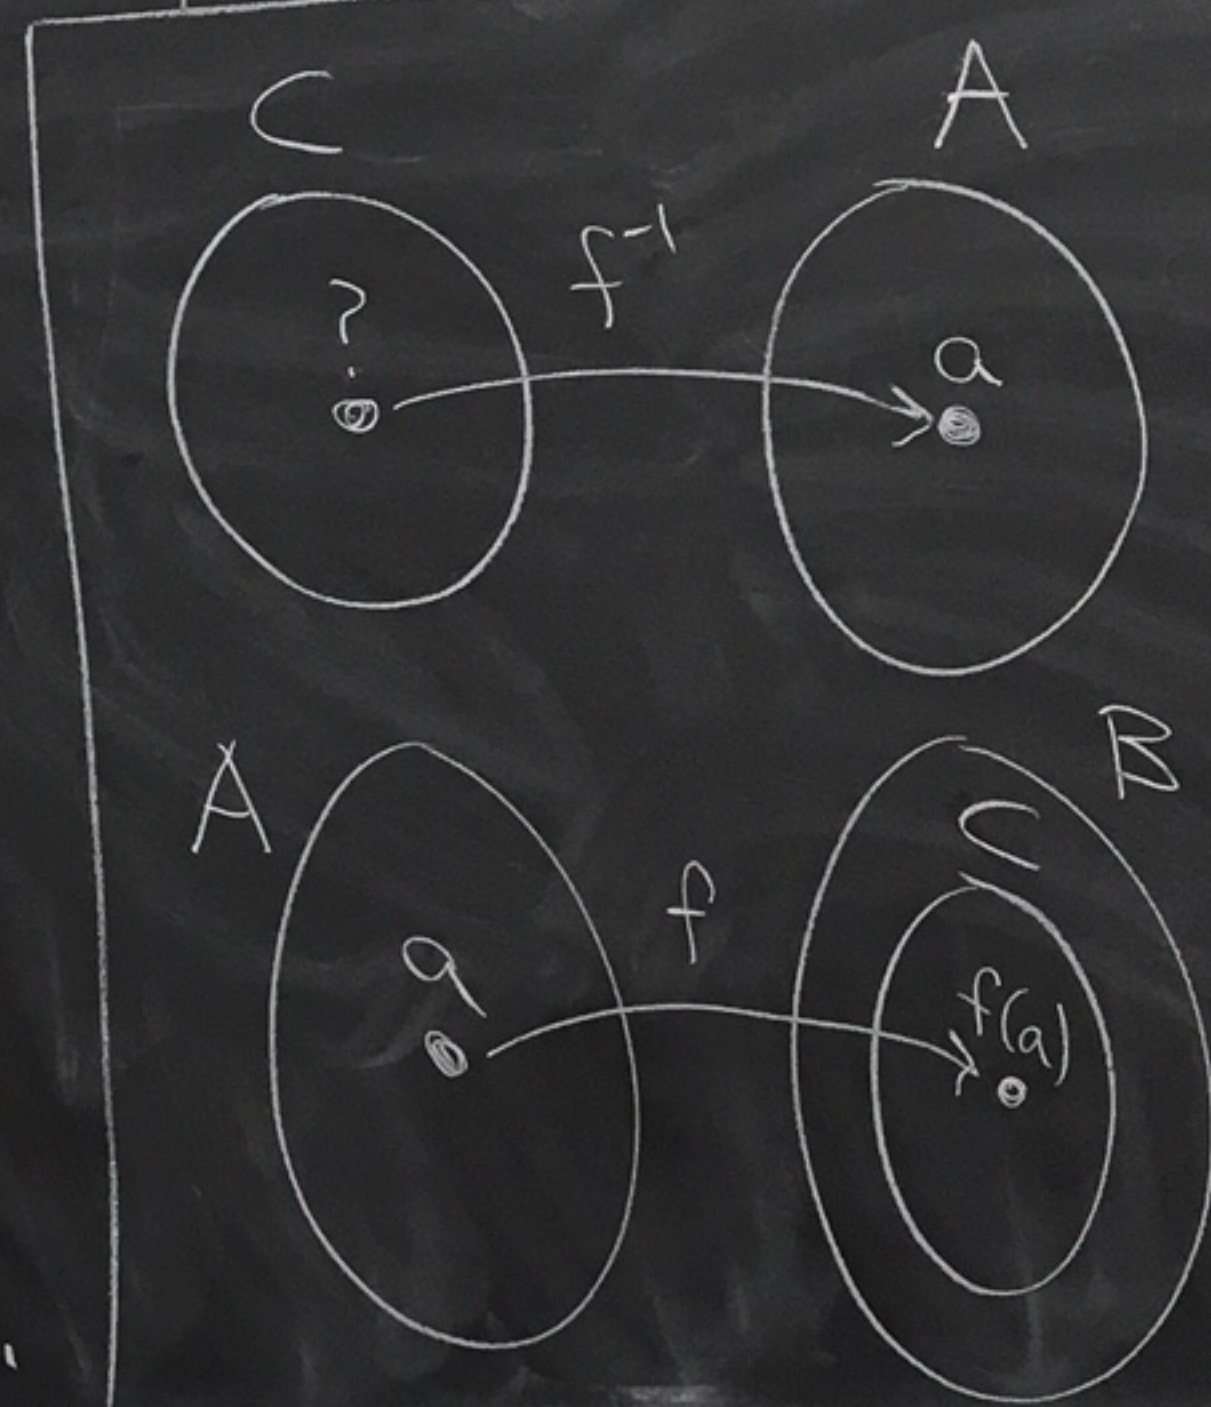 C A
f⁻¹
?
a
A B
C
f
a f(a)